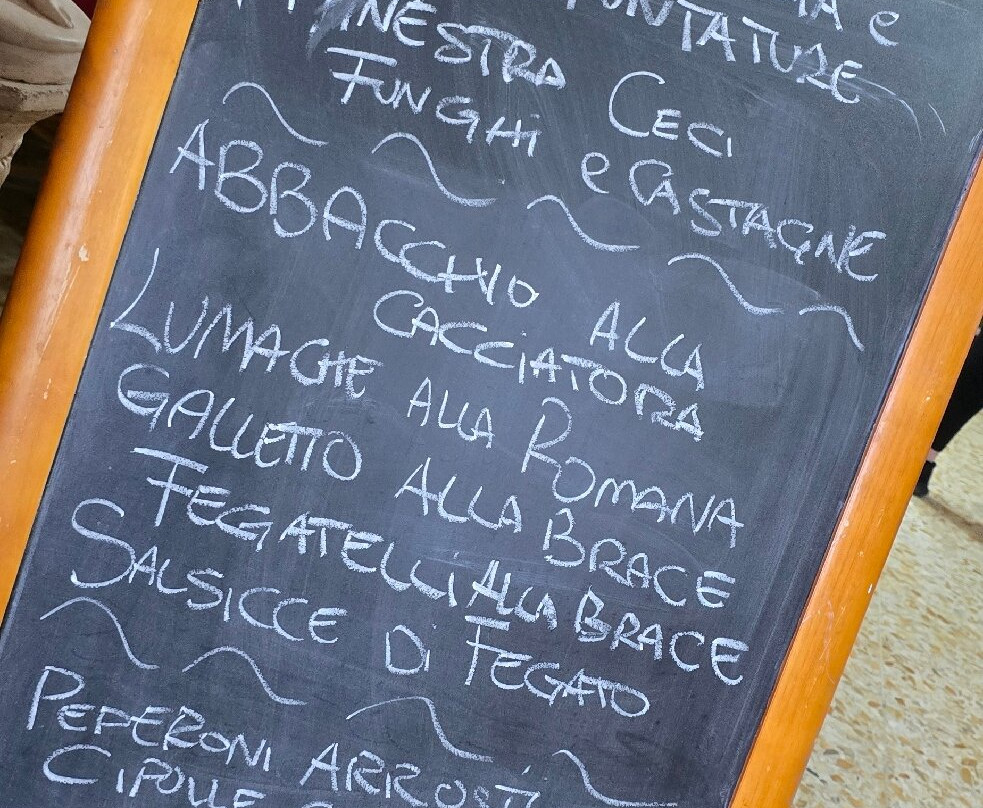 e
PUNTATURE
MINESTRA CECI
FUNGHI e CASTAGNE
ABBACCHIO ALLA
CACCIATORA
LUMACHE ALLA ROMANA
GALLETTO ALLA BRACE
FEGATELLI ALLA BRACE
SALSICCE Di FEGATO
PEPERONI ARROSTi
CIPOLLE